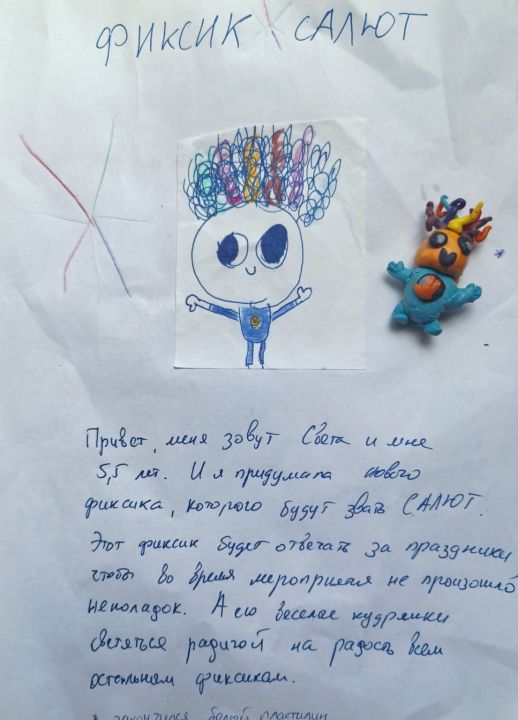 ФИКСИК САЛЮТ
*
Привет, меня зовут Света и мне
5,5 лет. И я придумала нового
фиксика, которого будут звать САЛЮТ.
Этот фиксик будет отвечать за праздники
чтобы во время мероприятия не произошло
неполадок. А его веселые кудряшки
светяться радугой на радость всем
остальным фиксикам.
* закончился белый пластилин